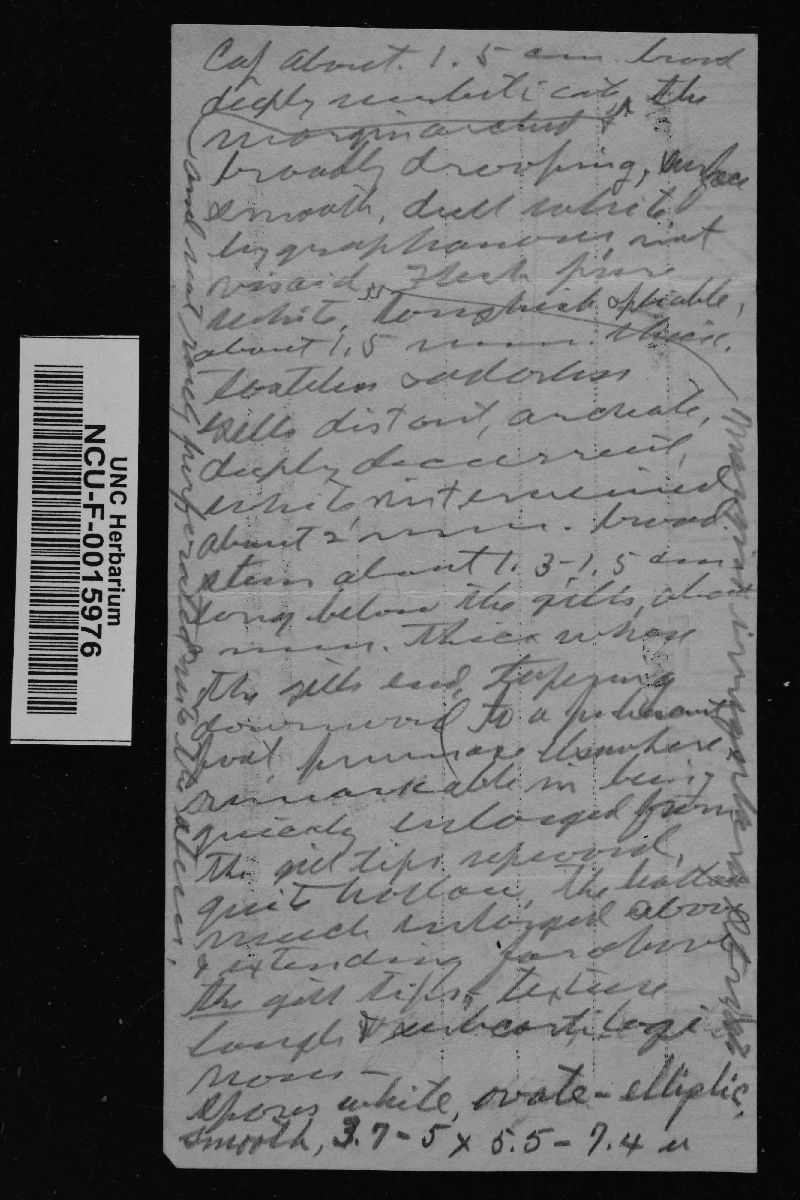 Cap about 1.5 cm broad
deeply umbilicate, the
margin arched &
broadly drooping, surface
smooth, dull white
hygrophanous, not
viscid, Flesh pure
white, toughish & pliable,
about 1.5 mm. thick.
tasteless & odorless
Gills distant, arcuate,
deeply decurrent,
white, interveined
about 2 mm. broad.
Stem about 1.3-1.5 cm
long below the gills, about
mm. thick where
the gills end, tapering
downward to a
but elsewhere
remarkable in being
quickly enlarged from
the gill tips upward,
quite hollow, the hollow
much enlarged above
& extending far above
the gill tips, texture
tough & subcartilagi
nous -
Spores white, ovate-elliptic,
smooth, 3.7-5 x 5.5-7.4 u
and not perforated into the stem.
Margin
UNC Herbarium
NCU-F-0015976